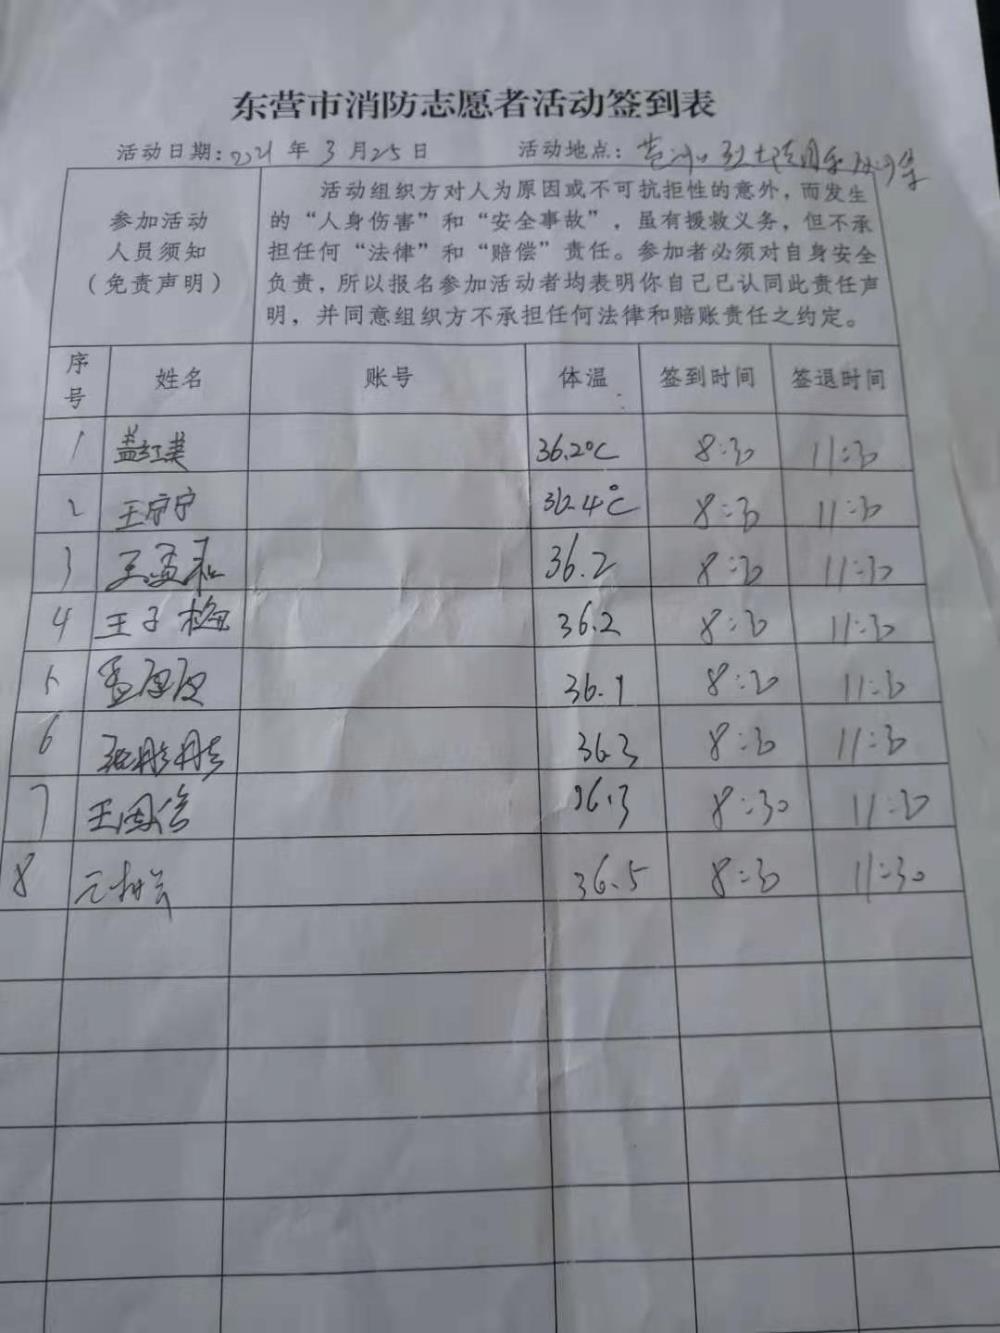 东营市消防志愿者活动签到表
活动日期:2021年3月25日 活动地点:
参加活动
人员须知
(免责声明)
活动组织方对人为原因或不可抗拒性的意外,而发生
的“人身伤害”和“安全事故”,虽有援救义务,但不承
担任何“法律”和“赔偿”责任。参加者必须对自身安全
负责,所以报名参加活动者均表明你自己已认同此责任声
明,并同意组织方不承担任何法律和赔账责任之约定。
序号 姓名 账号 体温 签到时间 签退时间
1 盖红美 36.2℃ 8:30 11:30
2 王宁宁 36.4℃ 8:30 11:30
3 王孟 36.2 8:30 11:30
4 王子梅 36.2 8:30 11:30
5 孟 36.1 8:30 11:30
6 张彤彤 36.3 8:30 11:30
7 王国 36.3 8:30 11:30
8 36.5 8:30 11:30